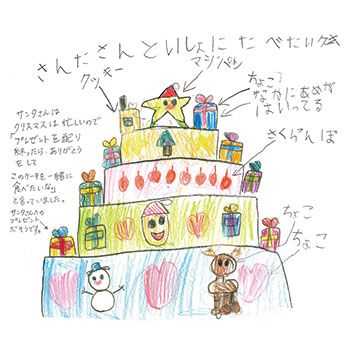 さんたさんといっしょにたべたいケーキ
クッキー
マジパン
ちょこ
なかにあめが
はいってる
さくらんぼ
サンタさんは
クリスマスは忙しいので
「プレゼントを配り
終わったら、ありがとう
をして
このケーキを一緒に
食べたいな」
と言っていました。
サンタさんへの
プレゼント
だそうです。
ちょこ
ちょこ